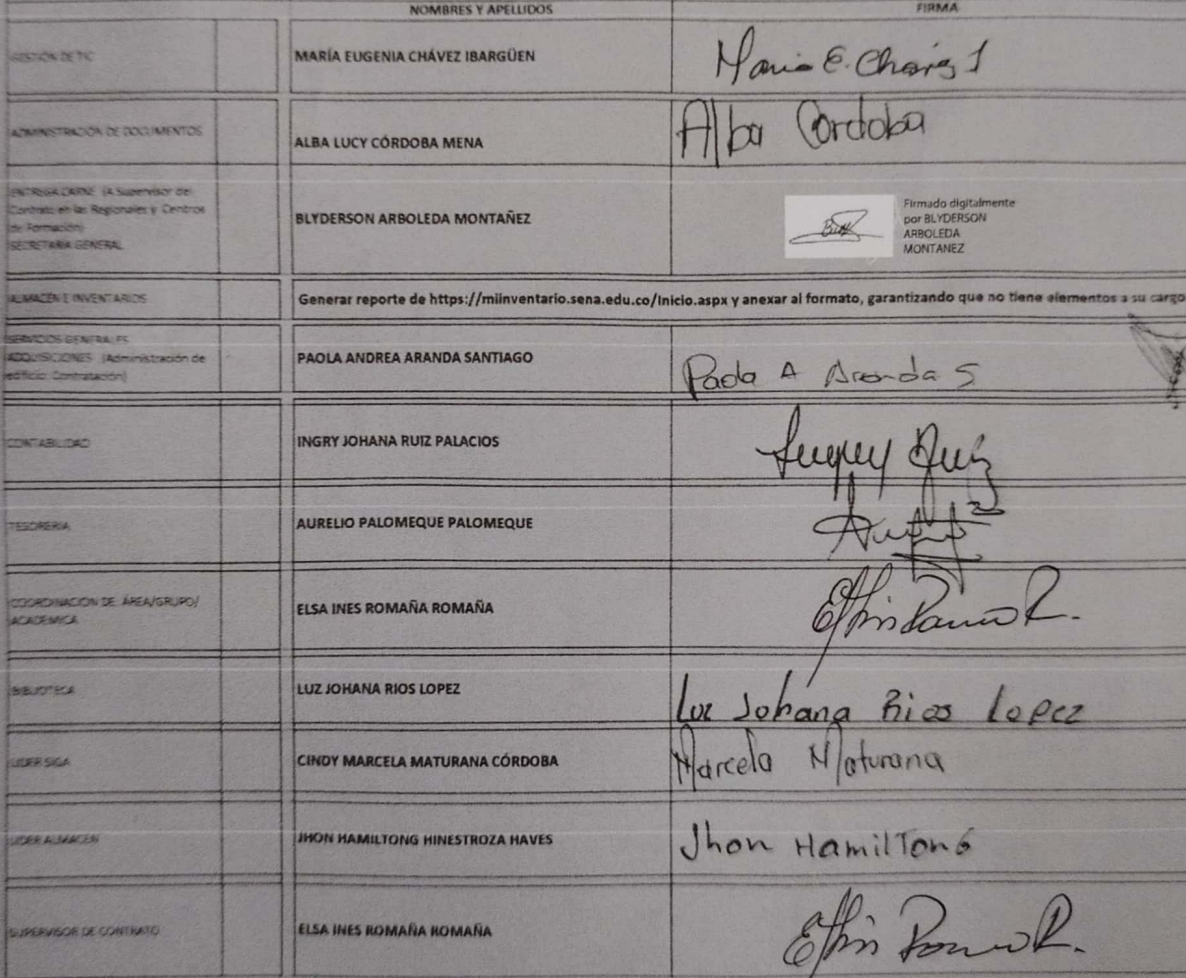 NOMBRES Y APELLIDOS FIRMA
GESTIÓN DE TIC MARÍA EUGENIA CHÁVEZ IBARGÜEN Maria E. Chavez I
ADMINISTRACIÓN DE DOCUMENTOS ALBA LUCY CÓRDOBA MENA Alba Cordoba
ENTREGA CARNÉ (A Supervisor de
Contrato en las Regionales y Centros
de Formación)
SECRETARIA GENERAL
BLYDERSON ARBOLEDA MONTAÑEZ
Firmado digitalmente
por BLYDERSON
ARBOLEDA
MONTANEZ
ALMACÉN E INVENTARIOS Generar reporte de https://miinventario.sena.edu.co/Inicio.aspx y anexar al formato, garantizando que no tiene elementos a su cargo
SERVICIOS GENERALES
ADQUISICIONES (Administración de
edificio: Contratación)
PAOLA ANDREA ARANDA SANTIAGO Paola A Aranda S
CONTABILIDAD INGRY JOHANA RUIZ PALACIOS
TESORERIA AURELIO PALOMEQUE PALOMEQUE
COORDINACIÓN DE ÁREA/GRUPO/
ACADÉMICA
ELSA INES ROMAÑA ROMAÑA
BIBLIOTECA LUZ JOHANA RIOS LOPEZ Luz Johana Rios Lopez
LIDER SIGA CINDY MARCELA MATURANA CÓRDOBA Marcela Maturana
LIDER ALMACEN JHON HAMILTONG HINESTROZA HAVES Jhon HamilTonG
SUPERVISOR DE CONTRATO ELSA INES ROMAÑA ROMAÑA